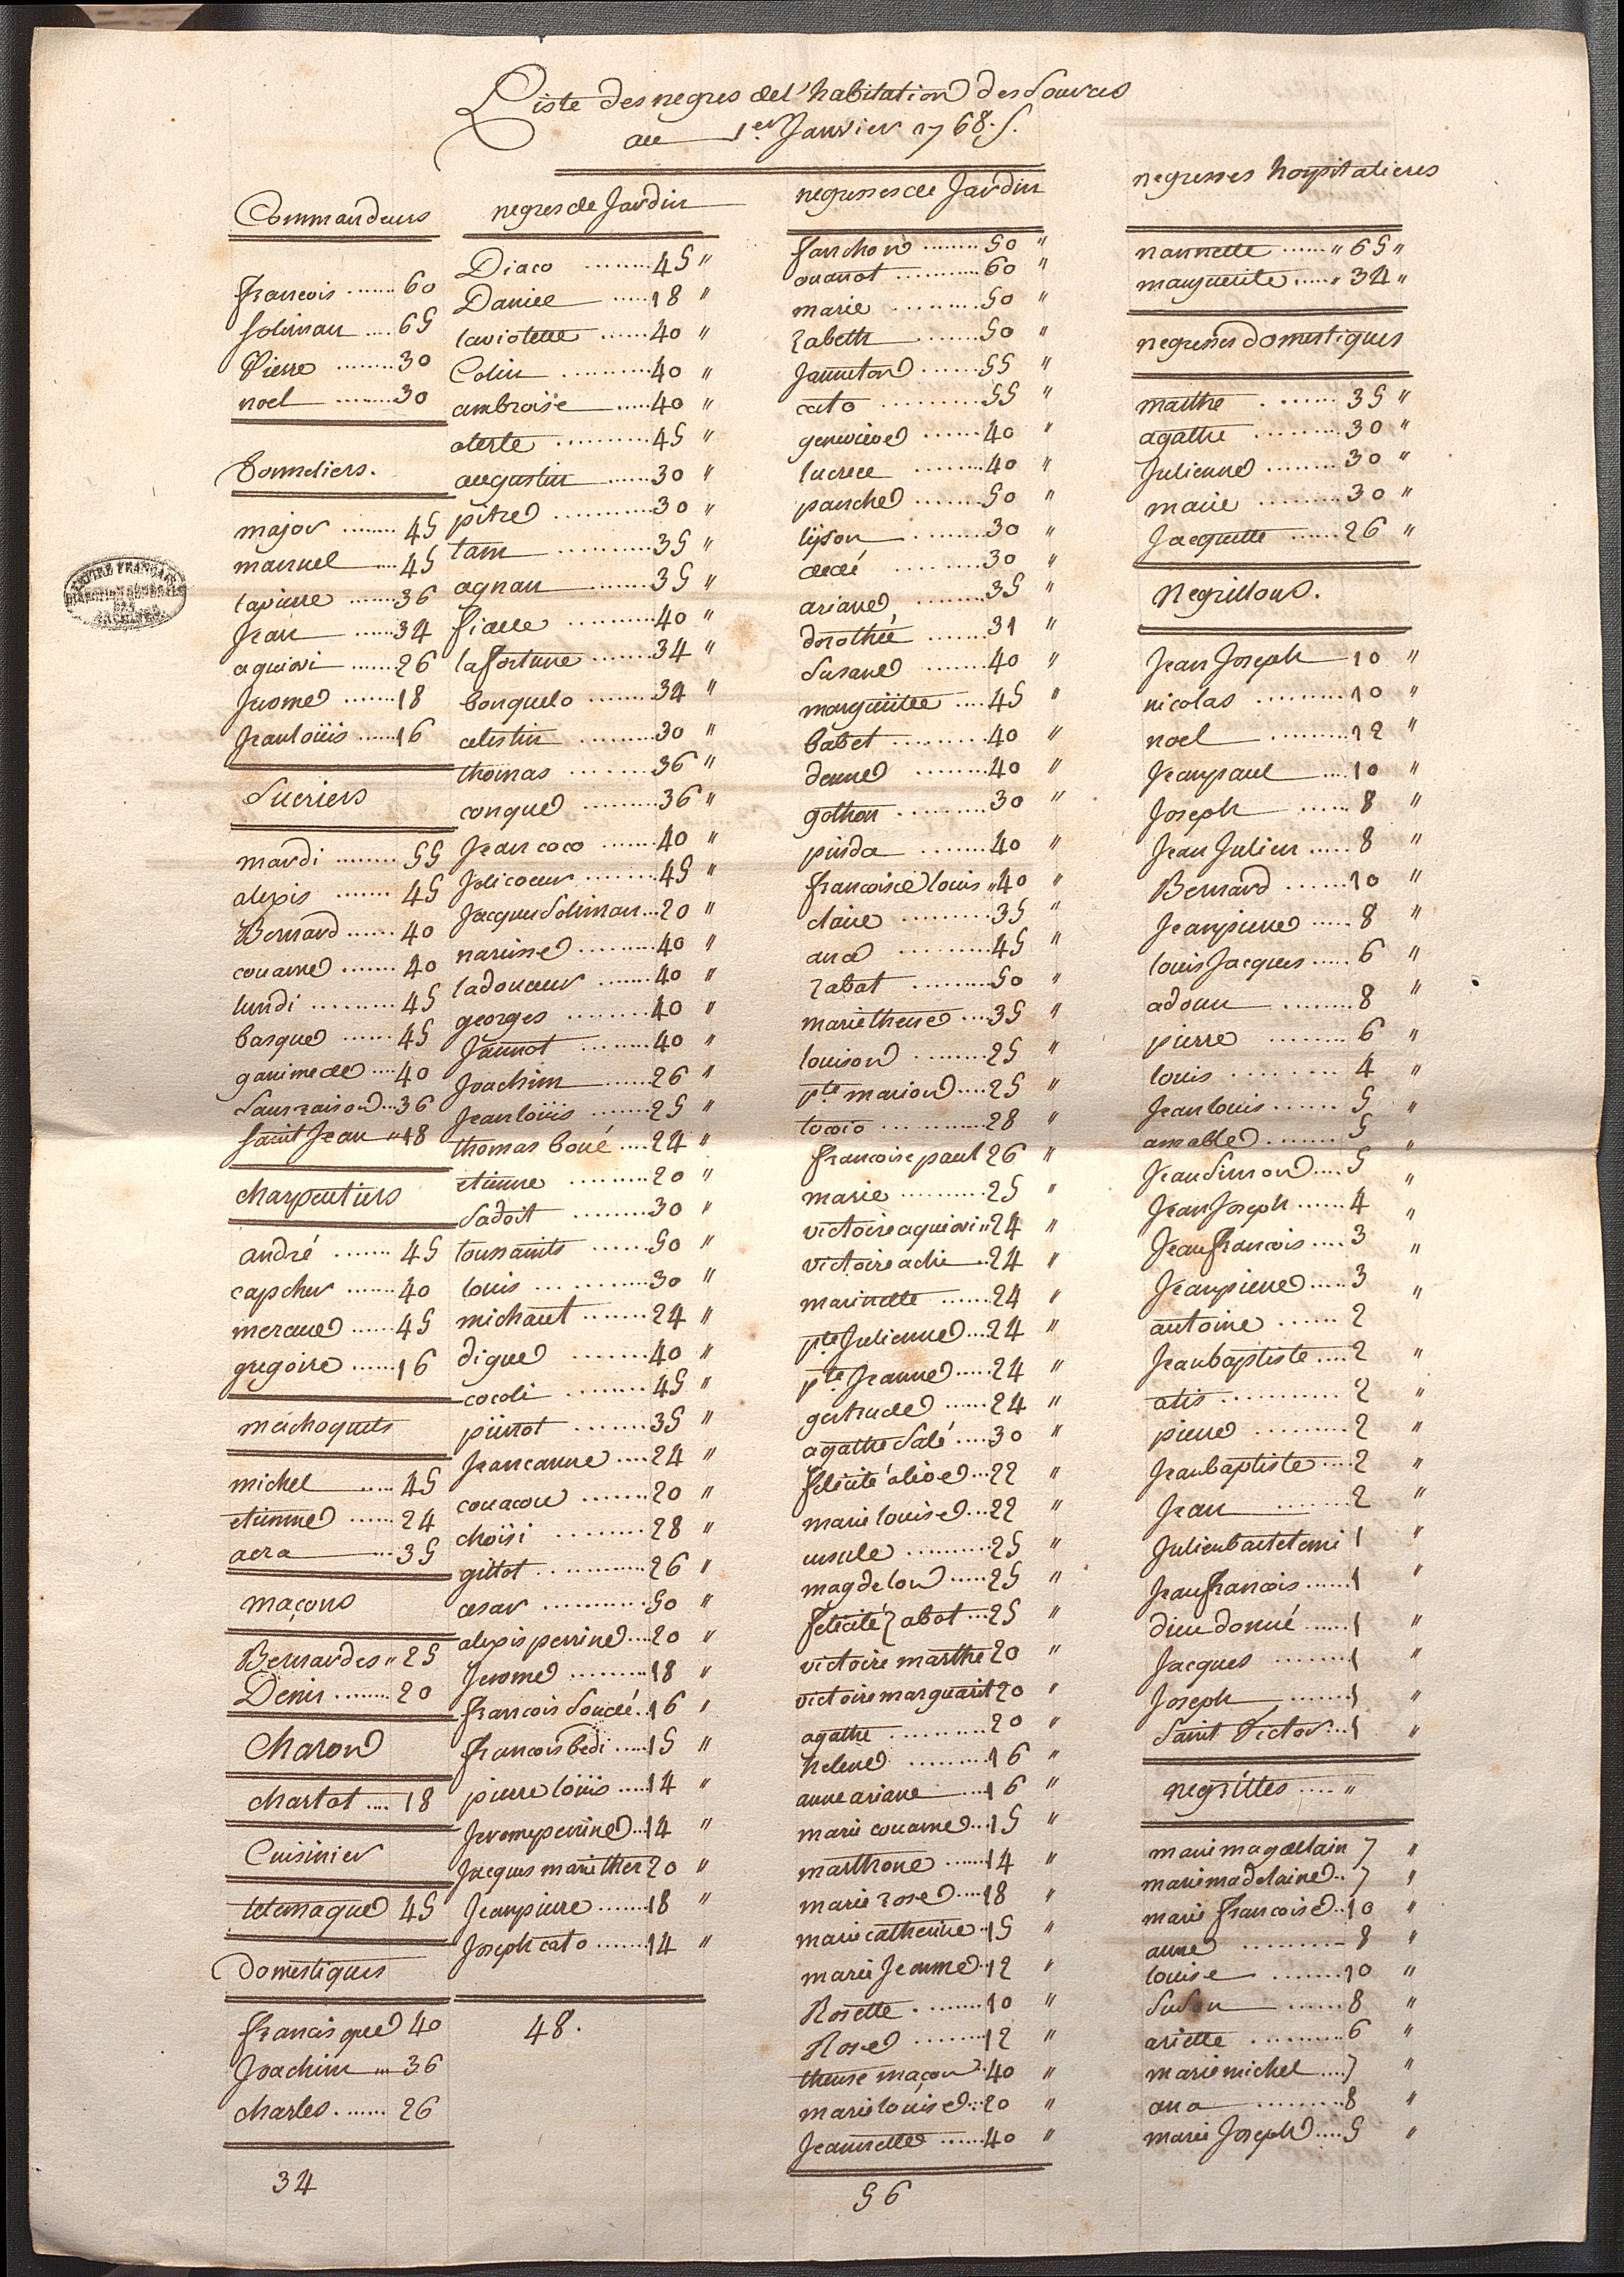 Liste des negres del'habitation des Sources
au 1.er Janvier 1768.
Commandeurs
francois ....... 60
soliman .... 65
Pierre ........ 30
noel ........ 30
Tonneliers.
major ....... 45
manuel .... 45
lapierre ....... 36
Jean ...... 34
aquiovi ...... 26
Jerome ....... 18
Jeanloüis ...... 16
Sucriers
mardi ........ 55
alexis ....... 45
Bernard ...... 40
couame ....... 40
lundi ......... 45
basque ...... 45
ganimede .... 40
Sansraison ... 36
saint Jean " 18
charpentiers
andré ....... 45
capcher ....... 40
mercure ...... 45
gregoire ...... 16
machoquets
michel ..... 45
etienne ...... 24
acra ... 35
maçons
Bernardes " 25
Denis ........ 20
Charon
chartot .... 18
Cuisinier
telemaque 45
Domestiques
francisque 40
Joachim ... 36
charles ....... 26
34
negres de Jardin
Diaco ........ 45 "
Daniel ..... 18 "
laviolette ...... 40 "
Colin .......... 40 "
ambroise ..... 40 "
alerte .......... 45 "
augustin ...... 30 "
pitre ........... 30 "
tam ........... 35 "
agnan ......... 35 "
fidelle .......... 40 "
lafortune ....... 34 "
bonquelo ........ 34 "
celestin ......... 30 "
thomas ........ 36 "
conque ......... 36 "
Jean coco ....... 40 "
Jolicoeur ........ 45 "
Jacques Soliman ... 20 "
narcisse ......... 40 "
ladouceur ....... 40 "
georges ......... 40 "
Jannot ........ 40 "
Joachim ...... 26 "
Jeanloüis ....... 25 "
thomas boué .... 24 "
etienne ......... 20 "
Sadoit ........ 30 "
toussaints ...... 50 "
louis ........... 30 "
michaut ....... 24 "
digue ........ 40 "
cocoli ........ 45 "
pierrot ....... 35 "
Jeancanne .... 24 "
couacou ....... 20 "
choisi ......... 28 "
gillot ........... 26 "
cesar .......... 50 "
alexis perrine .... 20 "
Jerome ......... 18 "
francois Soucié .. 16 "
francois bedi ..... 15 "
pierre loüis ..... 14 "
Jerome perrine ... 14 "
Jacques marie ther 20 "
Jeanpierre ....... 18 "
Joseph cato ....... 14 "
48.
negresses de Jardin
fanchon ........ 50 "
ouanot .......... 60 "
marie ......... 50 "
Zabeth ....... 50 "
Janneton ...... 55 "
cato .......... 55 "
genevieve ...... 40 "
lucrece ........ 40 "
panche ....... 50 "
lison ........ 30 "
dedé ......... 30 "
ariane ........ 35 "
dorothée ....... 31 "
Susane ....... 40 "
marguerite .... 45 "
babet ......... 40 "
denne ........ 40 "
gothon ......... 30 "
pinda ........ 40 "
francoise louis " 40 "
claire ......... 35 "
ana ......... 45 "
Zabat ......... 50 "
marietherese .... 35 "
louison ........ 25 "
p.te marion .... 25 "
cocoio ........... 28 "
francoise paul 26 "
marie .......... 25 "
victoire aquiovi " 24 "
victoire achi .. 24 "
marinette ....... 24 "
p.te Julienne ... 24 "
p.te Jeanne ..... 24 "
gertrude ...... 24 "
agathe Salé .... 30 "
felicité alive ... 22 "
marie louise ... 22 "
ursule ......... 25 "
magdelon ..... 25 "
felicité Zabot ... 25 "
victoire marthe 20 "
victoire marguarit 20 "
agathe .......... 20 "
helene ......... 16 "
anne ariane ... 16 "
marie couame ... 15 "
marthone ...... 14 "
marie rose .... 18 "
marie catherine .. 15 "
marie Jeanne .. 12 "
Rosette ........ 10 "
Rose ........ 12 "
therese maçon .. 40 "
marie louise .. 20 "
Jeannette ...... 40 "
56
negresses hospitalieres
nannette ...... " 65 "
marguerite ..... " 34 "
negresses domestiques
marthe ....... 35 "
agathe ......... 30 "
Julienne ........ 30 "
marie ......... 30 "
Jacquette ...... 26 "
Negrillons.
Jean Joseph 10 "
nicolas ......... 10 "
noel ......... 12 "
Jeanpaul .... 10 "
Joseph ...... 8 "
Jean Julien ..... 8 "
Bernard ...... 10 "
Jeanpierre ..... 8 "
louis Jacques ..... 6 "
adonn ........ 8 "
pierre ........ 6 "
louis ......... 4 "
Jeanlouis ...... 5 "
amable ........ 5 "
Jean Simon .... 5 "
Jean Joseph ...... 4 "
Jean francois .... 3 "
Jeanpierre ..... 3 "
antoine ...... 2 "
Jeanbaptiste .... 2 "
atis .......... 2 "
pierre ......... 2 "
Jeanbaptiste .... 2 "
Jean ....... 2 "
Julienbartelemi 1 "
Jeanfrancois ...... 1 "
dieu donné ...... 1 "
Jacques ....... 1 "
Joseph ....... 1 "
Saint Victor ... 1 "
negrittes .... "
marie magdelain 7 "
marie madelaine .. 7 "
marie francoise .. 10 "
anne ......... 8 "
louise ....... 10 "
Suson ...... 8 "
ariette ......... 6 "
marie michel .... 7 "
ana ......... 8 "
marie Joseph .... 5 "
EMPIRE FRANÇAIS
DIRECTION GÉNÉRALE
DES
ARCHIVES